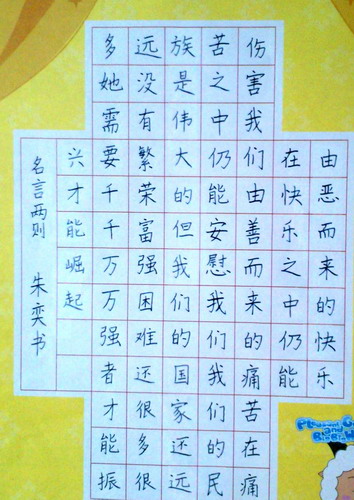 由恶而来的快乐
在快乐之中仍能
伤害我们由善而来的痛苦在痛
苦之中仍能安慰我们我们的民
族是伟大的但我们的国家还远
远没有繁荣富强困难还很多很
多她需要千千万万强者才能振
兴才能崛起
名言两则 朱奕书
Pleasant
and
Big Big